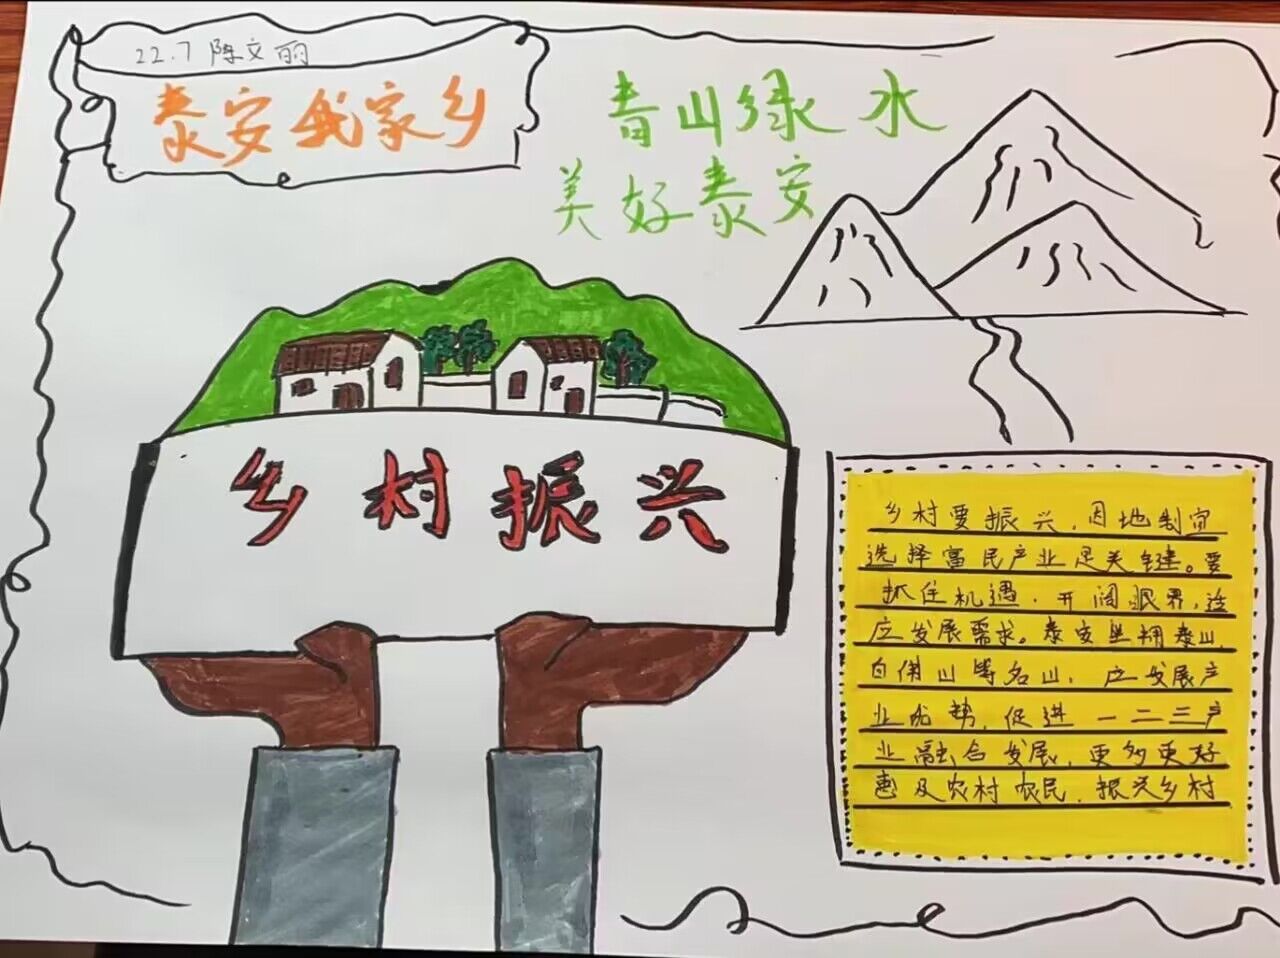 22.7 陈文丽
泰安我家乡
青山绿水
美好泰安
乡村振兴
乡村要振兴，因地制宜
选择富民产业是关键。要
抓住机遇，开阔眼界，适
应发展需求。泰安坐拥泰山，
白佛山等名山，应发展产
业优势，促进一二三产
业融合发展，更多更好
惠及农村农民，振兴乡村